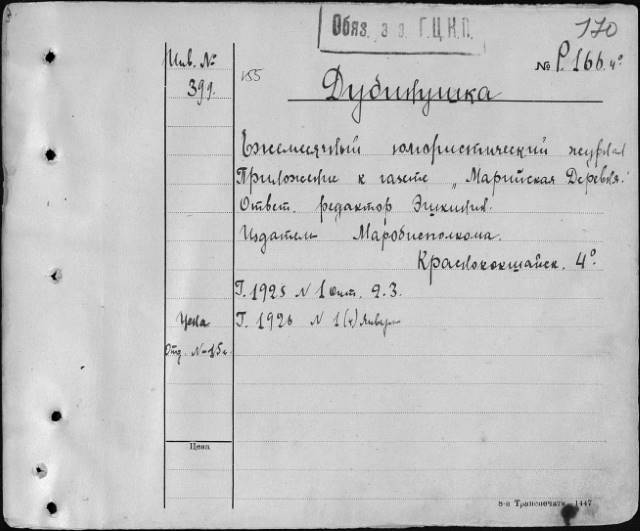 Обяз. э з. Г.Ц.К.П.
170
Инв. №
399.
155
№ Р.166. 4°
Дубинушка
Ежемесячный юмористический журнал
Приложение к газете „Марийская Деревня.
Ответ. редактор Эшкинин.
Издатель Маробисполкома.
Краснококшайск. 4°.
Г. 1925 N 1 Окт. 2.3.
Цена
Г. 1926 N 1(4) Январь
Отд. №-15к.
Цена
8-я Транспечать 1447